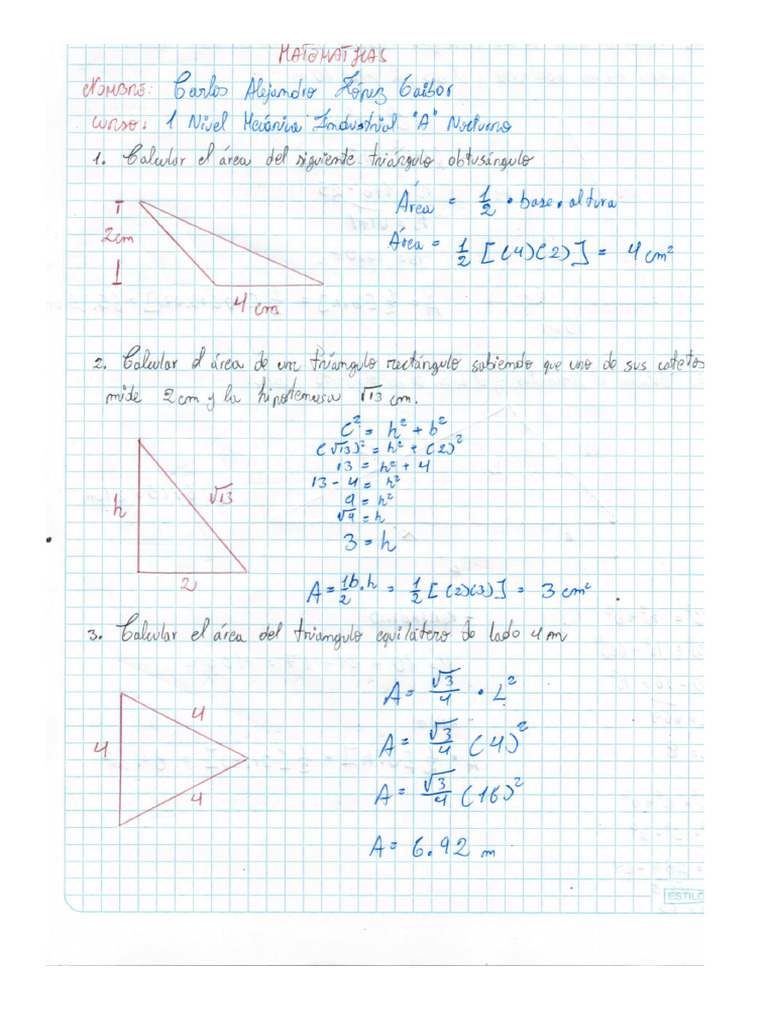 MATEMATICAS
NOMBRE: Carlos Alejandro López Gaibor
CURSO: 1 Nivel Mecánica Industrial "A" Nocturno
1. Calcular el área del siguiente triángulo obtusángulo
Área = 1/2 • base • altura
2cm
Área = 1/2 [(4)(2)] = 4 cm²
4 cm
2. Calcular el área de un triángulo rectángulo sabiendo que uno de sus catetos
mide 2cm y la hipotenusa √13 cm.
c² = h² + b²
(√13)² = h² + (2)²
13 = h² + 4
13 - 4 = h²
9 = h²
√9 = h
3 = h
h
√13
2
A = 1b.h/2 = 1/2 [(2)(3)] = 3 cm²
3. Calcular el área del triangulo equilátero de lado 4m
A = √3/4 • L²
A = √3/4 (4)²
A = √3/4 (16)²
A = 6.92 m
4
4
4
ESTILO